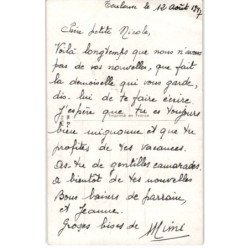 Toulouse le 12 Août 19
Chère petite Nicole,
Voilà longtemps que nous n'avons
pas de vos nouvelles, que fait
la demoiselle qui vous garde,
dis lui de te faire écrire
J'espère que tu es toujours
bien mignonne et que tu
profites de tes vacances.
As-tu de gentilles camarades
à bientôt de tes nouvelles
Bons baisers de parrain
et Jeanne.
Grosses bises de Mimi